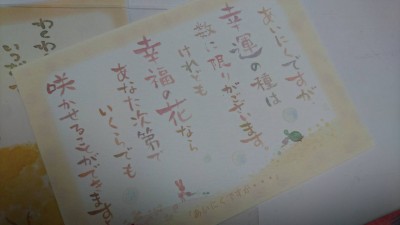 あいにくですが
幸運の種は
数に限りがございます。
けれども
幸福の花なら
あなた次第で
いくらでも
咲かせることができます